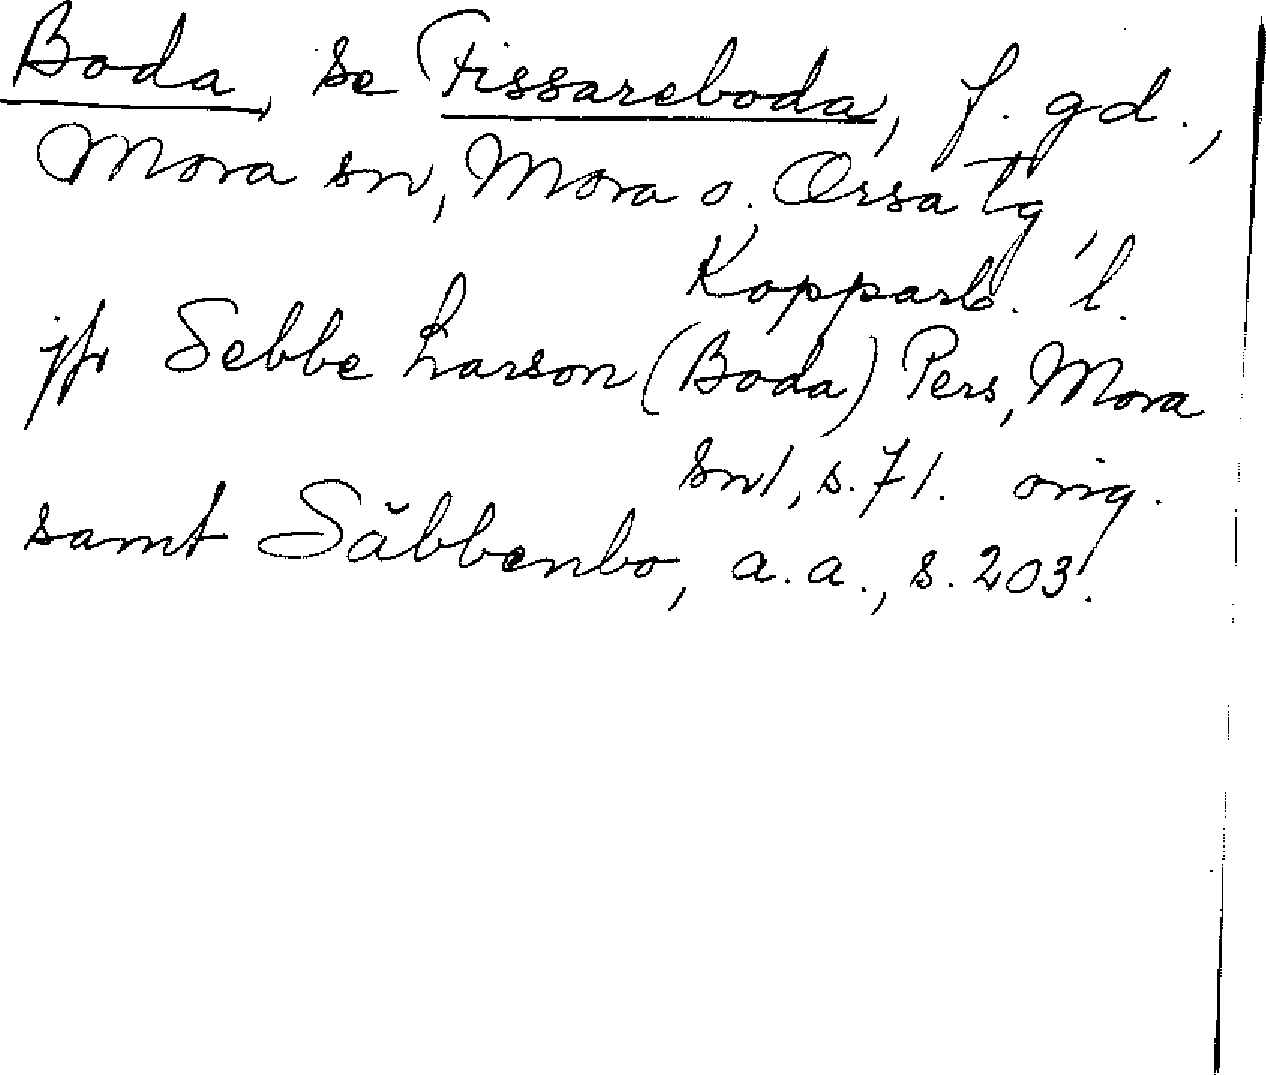 Boda, se Fissareboda, f. gd.,
Mora sn, Mora o. Orsa tg
Kopparb. l.
jfr Sebbe Larson (Boda) Pers, Mora
sn 1, s. 71. orig.
samt Säbbenbo, a.a., s. 203.